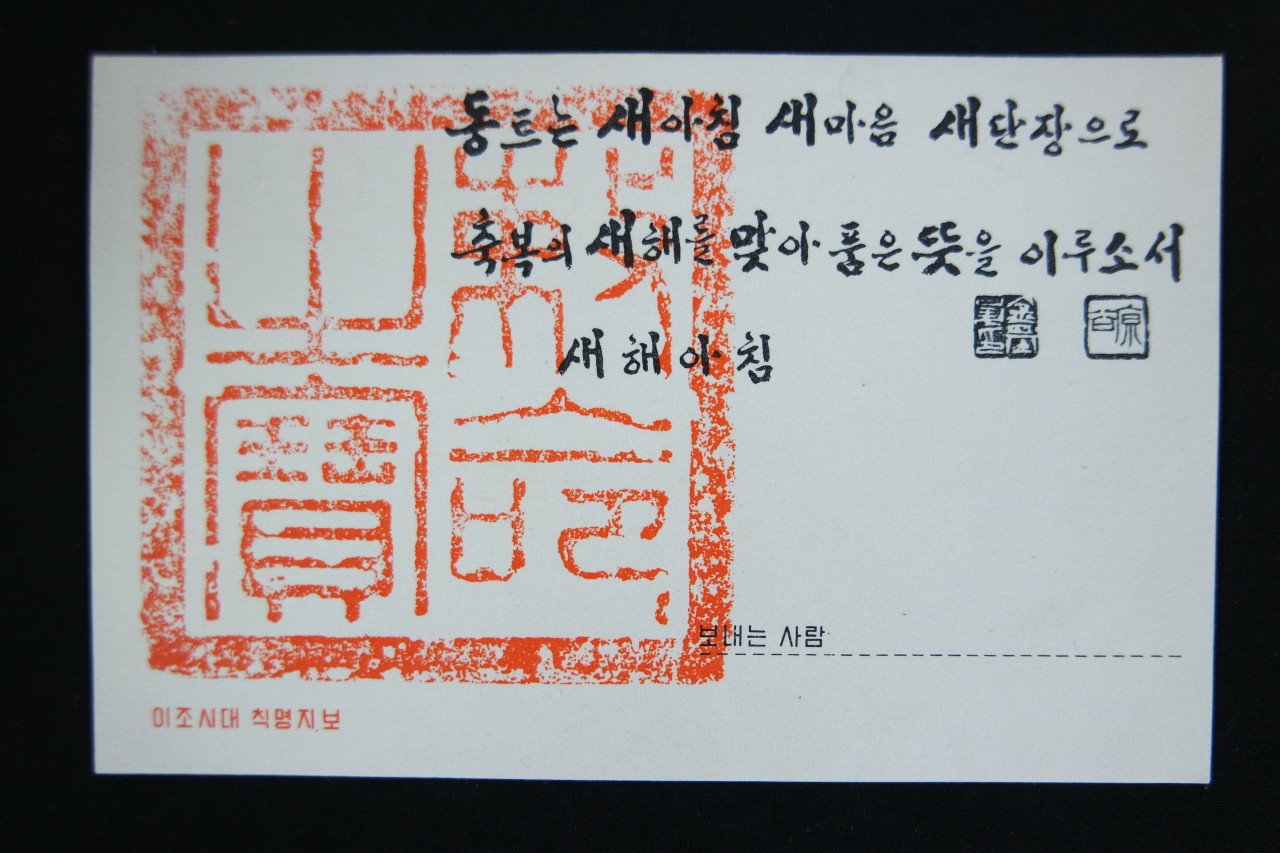 동트는 새아침 새마음 새단장으로
축복의 새해를 맞아 품은 뜻을 이루소서
새해아침
보내는 사람
이조시대 칙명지보
敕命
之寶